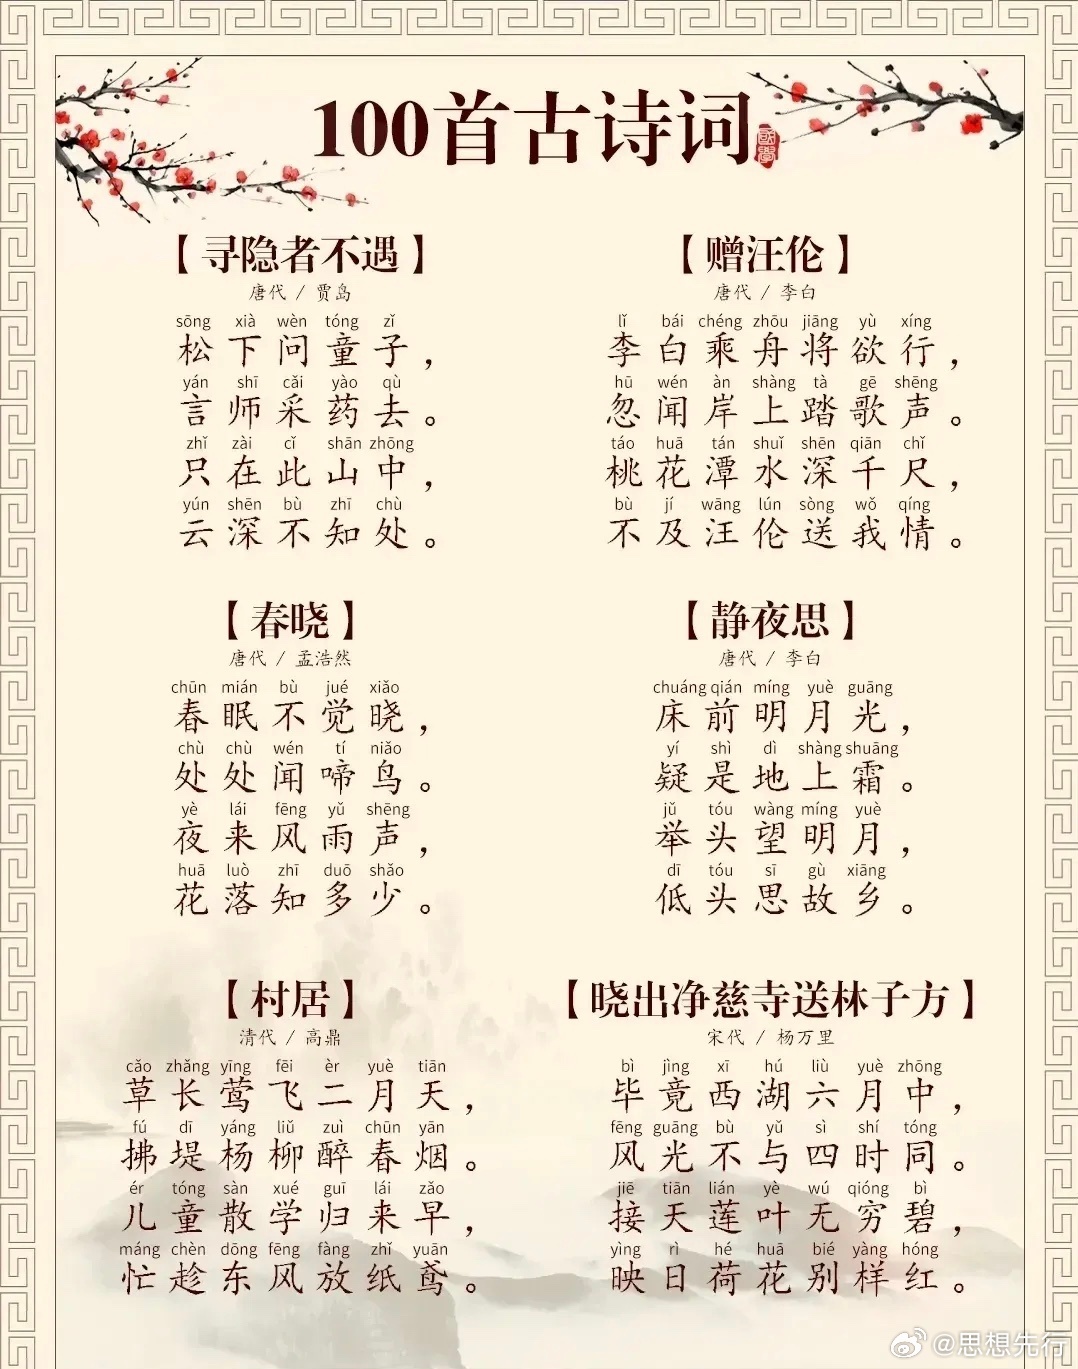 100首古诗词
國學
【寻隐者不遇】
唐代 / 贾岛
sōng xià wèn tóng zǐ
松下问童子，
yán shī cǎi yào qù
言师采药去。
zhǐ zài cǐ shān zhōng
只在此山中，
yún shēn bù zhī chù
云深不知处。
【赠汪伦】
唐代 / 李白
lǐ bái chéng zhōu jiāng yù xíng
李白乘舟将欲行，
hū wén àn shàng tà gē shēng
忽闻岸上踏歌声。
táo huā tán shuǐ shēn qiān chǐ
桃花潭水深千尺，
bù jí wāng lún sòng wǒ qíng
不及汪伦送我情。
【春晓】
唐代 / 孟浩然
chūn mián bù jué xiǎo
春眠不觉晓，
chù chù wén tí niǎo
处处闻啼鸟。
yè lái fēng yǔ shēng
夜来风雨声，
huā luò zhī duō shǎo
花落知多少。
【静夜思】
唐代 / 李白
chuáng qián míng yuè guāng
床前明月光，
yí shì dì shàng shuāng
疑是地上霜。
jǔ tóu wàng míng yuè
举头望明月，
dī tóu sī gù xiāng
低头思故乡。
【村居】
清代 / 高鼎
cǎo zhǎng yīng fēi èr yuè tiān
草长莺飞二月天，
fú dī yáng liǔ zuì chūn yān
拂堤杨柳醉春烟。
ér tóng sàn xué guī lái zǎo
儿童散学归来早，
máng chèn dōng fēng fàng zhǐ yuān
忙趁东风放纸鸢。
【晓出净慈寺送林子方】
宋代 / 杨万里
bì jìng xī hú liù yuè zhōng
毕竟西湖六月中，
fēng guāng bù yǔ sì shí tóng
风光不与四时同。
jiē tiān lián yè wú qióng bì
接天莲叶无穷碧，
yìng rì hé huā bié yàng hóng
映日荷花别样红。
@思想先行